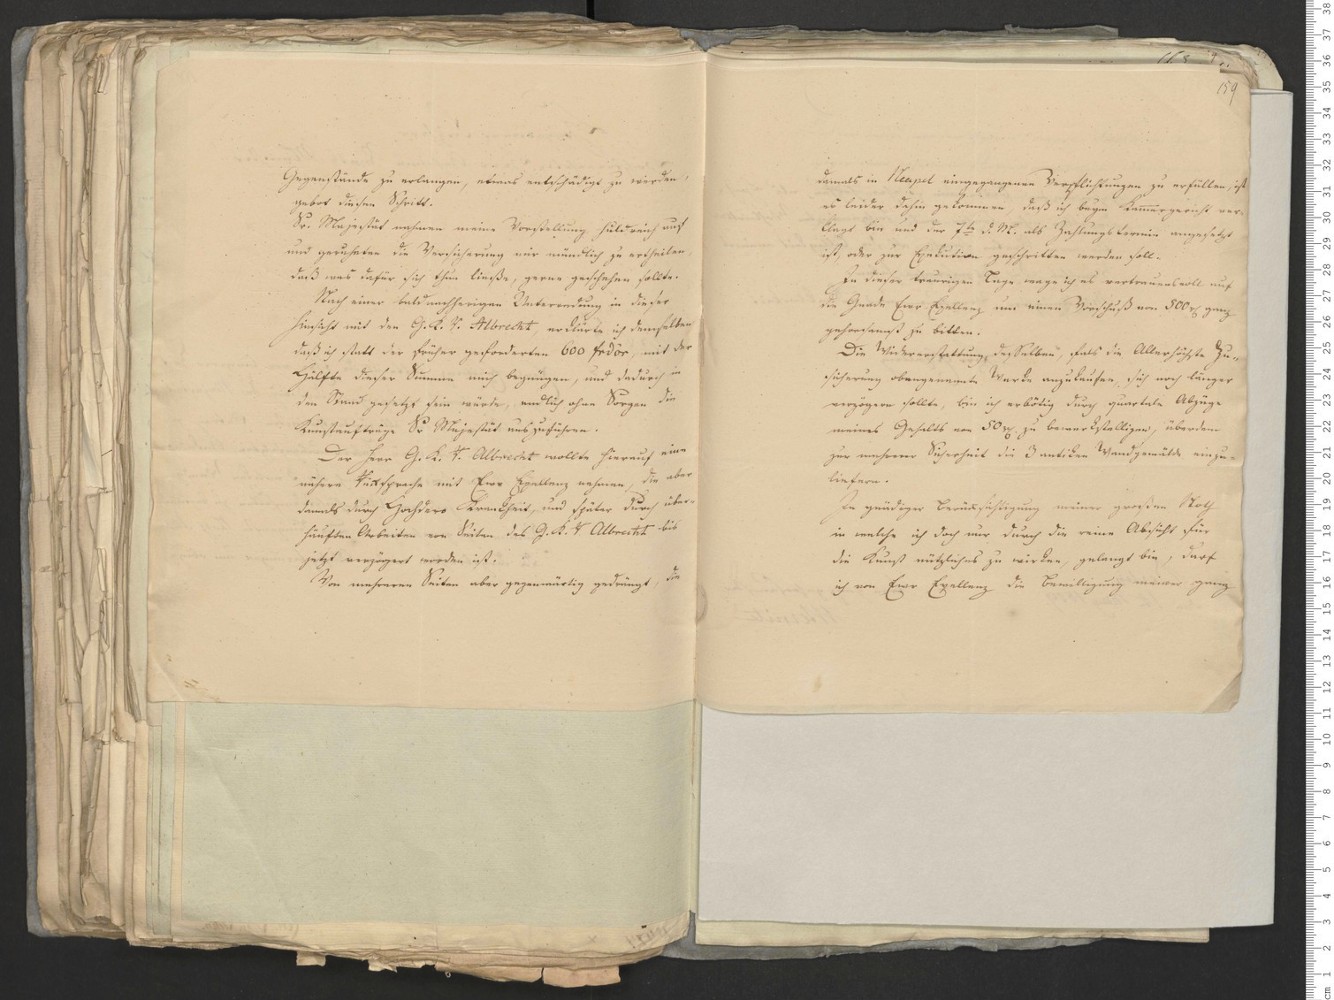 Gegenstände zu erlangen, etwas entschädigt zu werden,
gebot diesen Schritt.
Sr. Majestät nahmen meine Vorstellung huldreich auf
und geruheten die Versicherung mir mündlich zu ertheilen,
daß was dafür sich thun ließe, gerne geschehen sollte.
Nach einer baldnachherigen Unterredung in dieser
Hinsicht mit den G. K. R. Albrecht, erklärte ich demselben
daß ich statt der früher geforderten 600 frdor, mit der
Hälfte dieser Summe mich begnügen, und dadurch in
den Stand gesetzt sein würde, endlich ohne Sorgen die
Kunstaufträge Sr Majestät auszuführen.
Der Herr G. K. R. Albrecht wollte hierauf eine
nähere Rücksprache mit Euer Exellenz nehmen, die aber
damals durch Hochdero Krankheit, und später durch über-
häuften Arbeiten von Seiten des G. K. R Albrecht bis
jetzt verzögert worden ist.
Von mehreren Seiten aber gegenwärtig gedrängt, die
159
damals in Neapel eingegangenen Verpflichtungen zu erfüllen, ist
es leider dahin gekommen, daß ich beym Kammergericht ver-
klagt bin und der 7te d. M. als Zahlungstermin angesetzt
ist, oder zur Exekution geschritten werden soll.
In dieser traurigen Lage wage ich es vertrauensvoll auf
die Gnade Euer Exellenz um einen Vorschuß von 500 rt ganz
gehorsamst zu bitten.
Die Wiedererstattung desselben, falls die Allerhöchste Zu-
sicherung obengenannte Werke anzukaufen, sich noch länger
verzögern sollte, bin ich erbötig durch quartale Abzüge
meines Gehalts von 50 rt zu bewerkstelligen, überdem
zur mehrerer Sicherheit die 3 antiken Wandgemälde einzu-
liefern.
In gnädiger Berücksichtigung meiner großen Noth
in welche ich doch nur durch die reine Absicht für
die Kunst nützliches zu wirken, gelangt bin, darf
ich von Euer Exellenz die Bewilligung meiner ganz